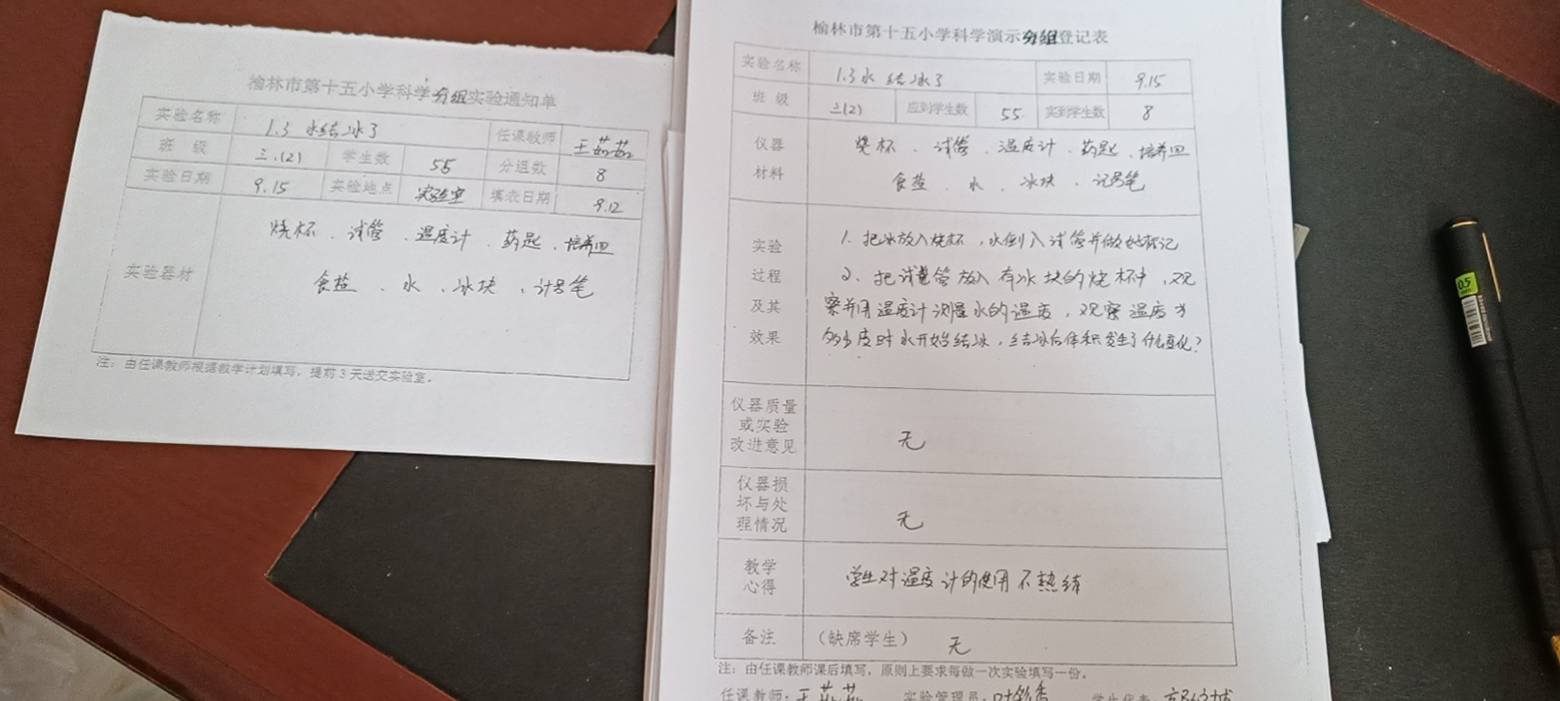 榆林市第十五小学科学分组实验通知单
实验名称 1.3 水结冰了 任课教师 王茹茹
班 级 三.(2) 学生数 55 分组数 8
实验日期 9.15 实验地点 实验室 填表日期 9.12
实验器材
烧杯、试管、温度计、药匙、培养皿
食盐、水、冰块、计号笔
注：由任课教师根据教学计划填写，提前3天送交实验室。
榆林市第十五小学科学演示分组登记表
实验名称 1.3水结冰了 实验日期 9.15
班 级 三(2) 应到学生数 55 实到学生数 8
仪器
材料
烧杯、试管、温度计、药匙、培养皿
食盐、水、冰块、记号笔
实验
过程
及其
效果
1. 把冰放入烧杯，水倒入试管并做好标记
2、把试管放入有冰块的烧杯中，观
察并用温度计测量水的温度，观察温度为
多少度时水开始结冰，结冰后体积发生了什么变化?
仪器质量
或实验
改进意见
无
仪器损
坏与处
理情况
无
教学
心得
学生对温度计的使用不熟练
备注 (缺席学生) 无
注：由任课教师课后填写，原则上要求每做一次实验填写一份。
任课教师：王茹茹 实验管理员： 学生代表：
0.5